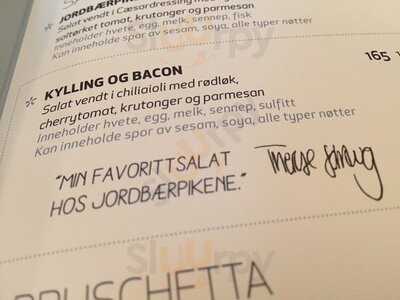 JORDBÆRPIK
Salat vendt i Cæsardressing med
soltørket tomat, krutonger og parmesan
Inneholder hvete, egg, melk, sennep, fisk
Kan inneholde spor av sesam, soya, alle typer nøtter
KYLLING OG BACON
165
Salat vendt i chiliaioli med rødløk,
cherrytomat, krutonger og parmesan
Inneholder hvete, egg, melk, sennep, sulfitt
Kan inneholde spor av sesam, soya, alle typer nøtter
"MIN FAVORITTSALAT
HOS JORDBÆRPIKENE."
BRUSCHETTA